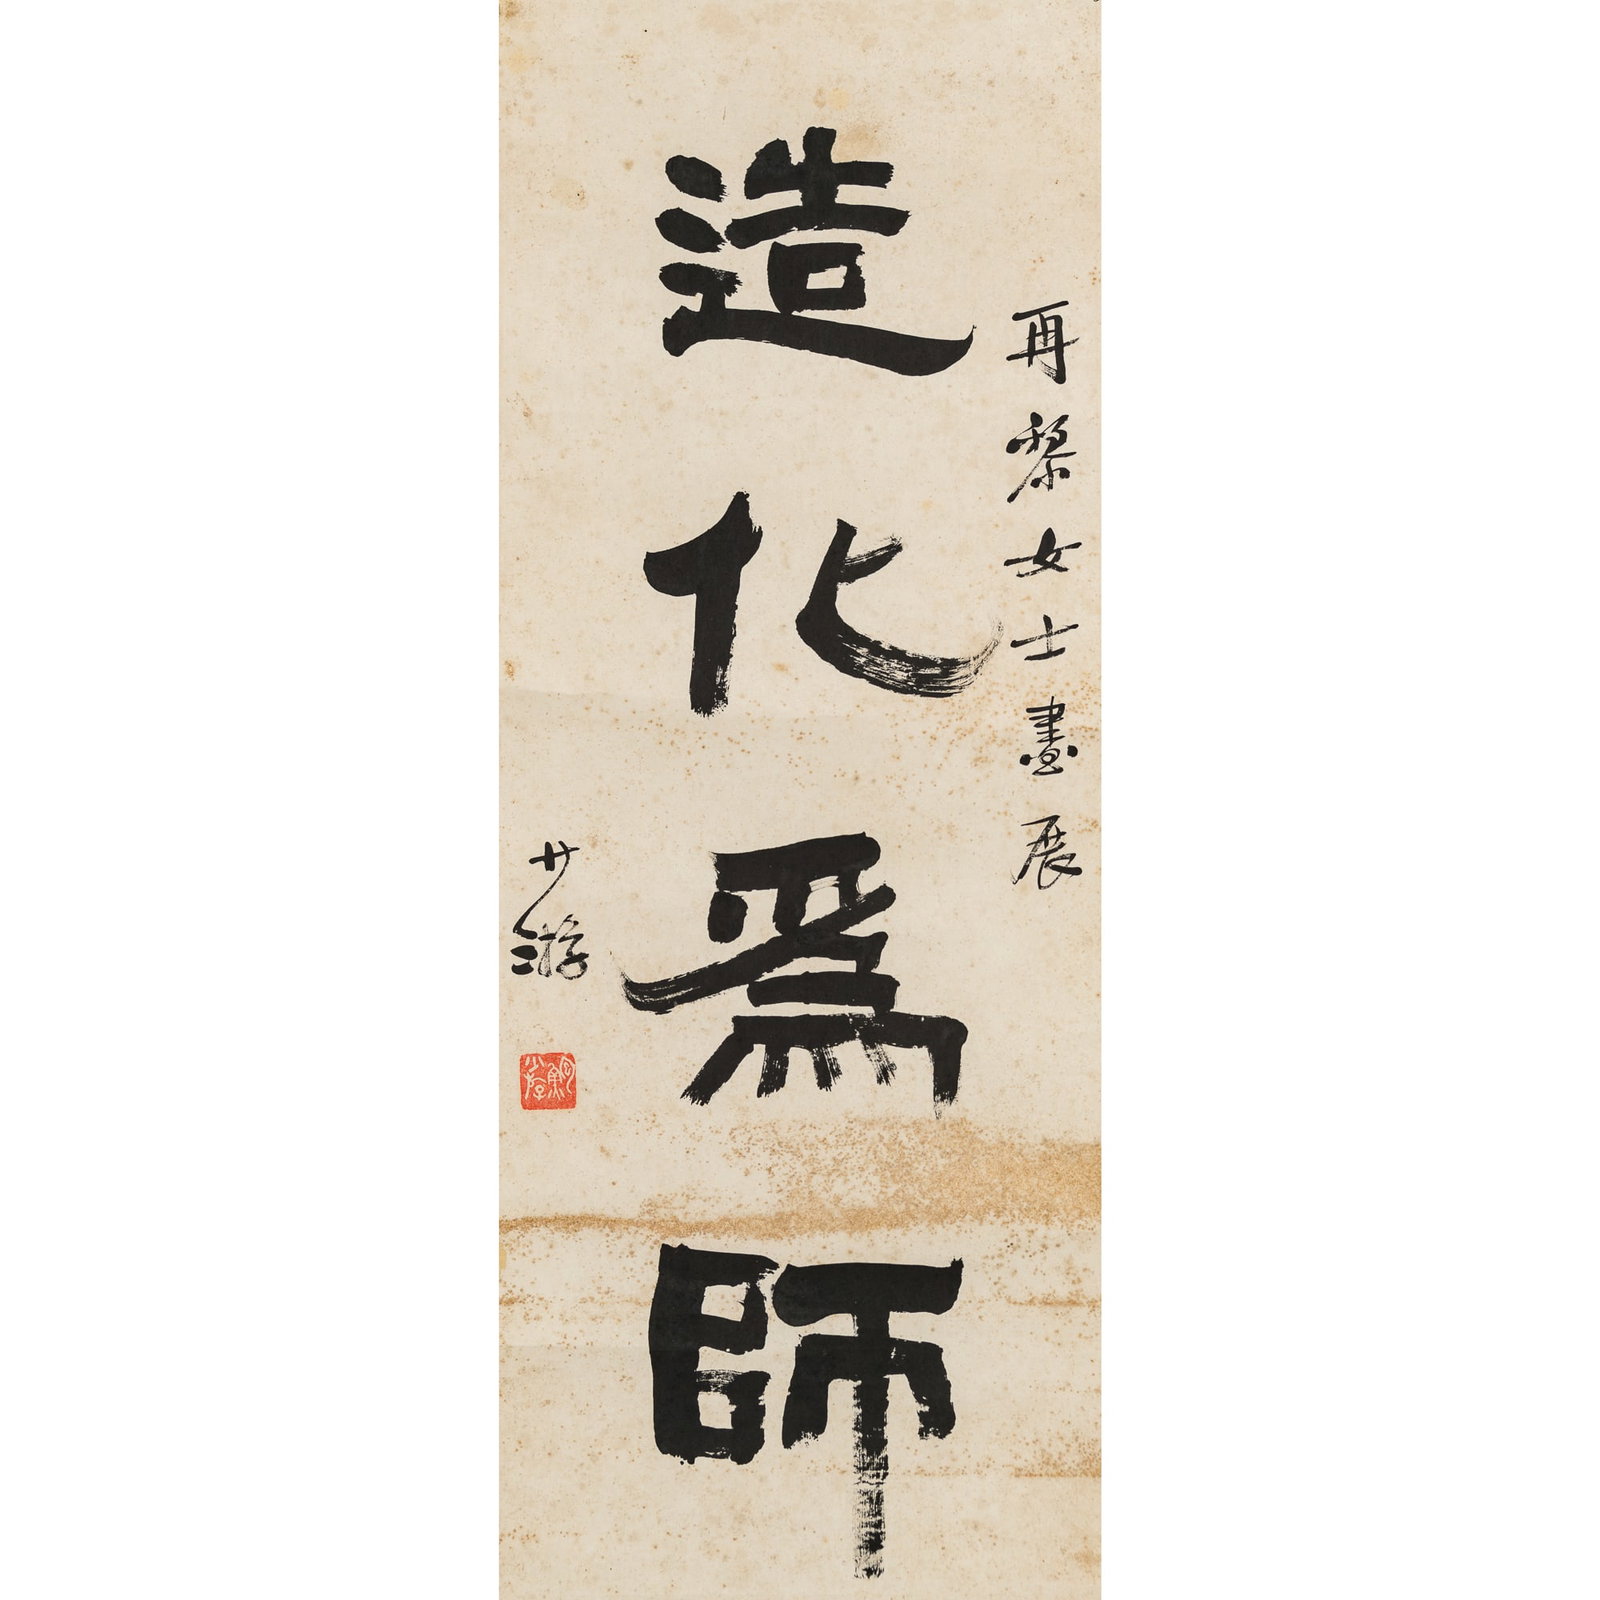 再黎女士畫展
造化爲師
少游